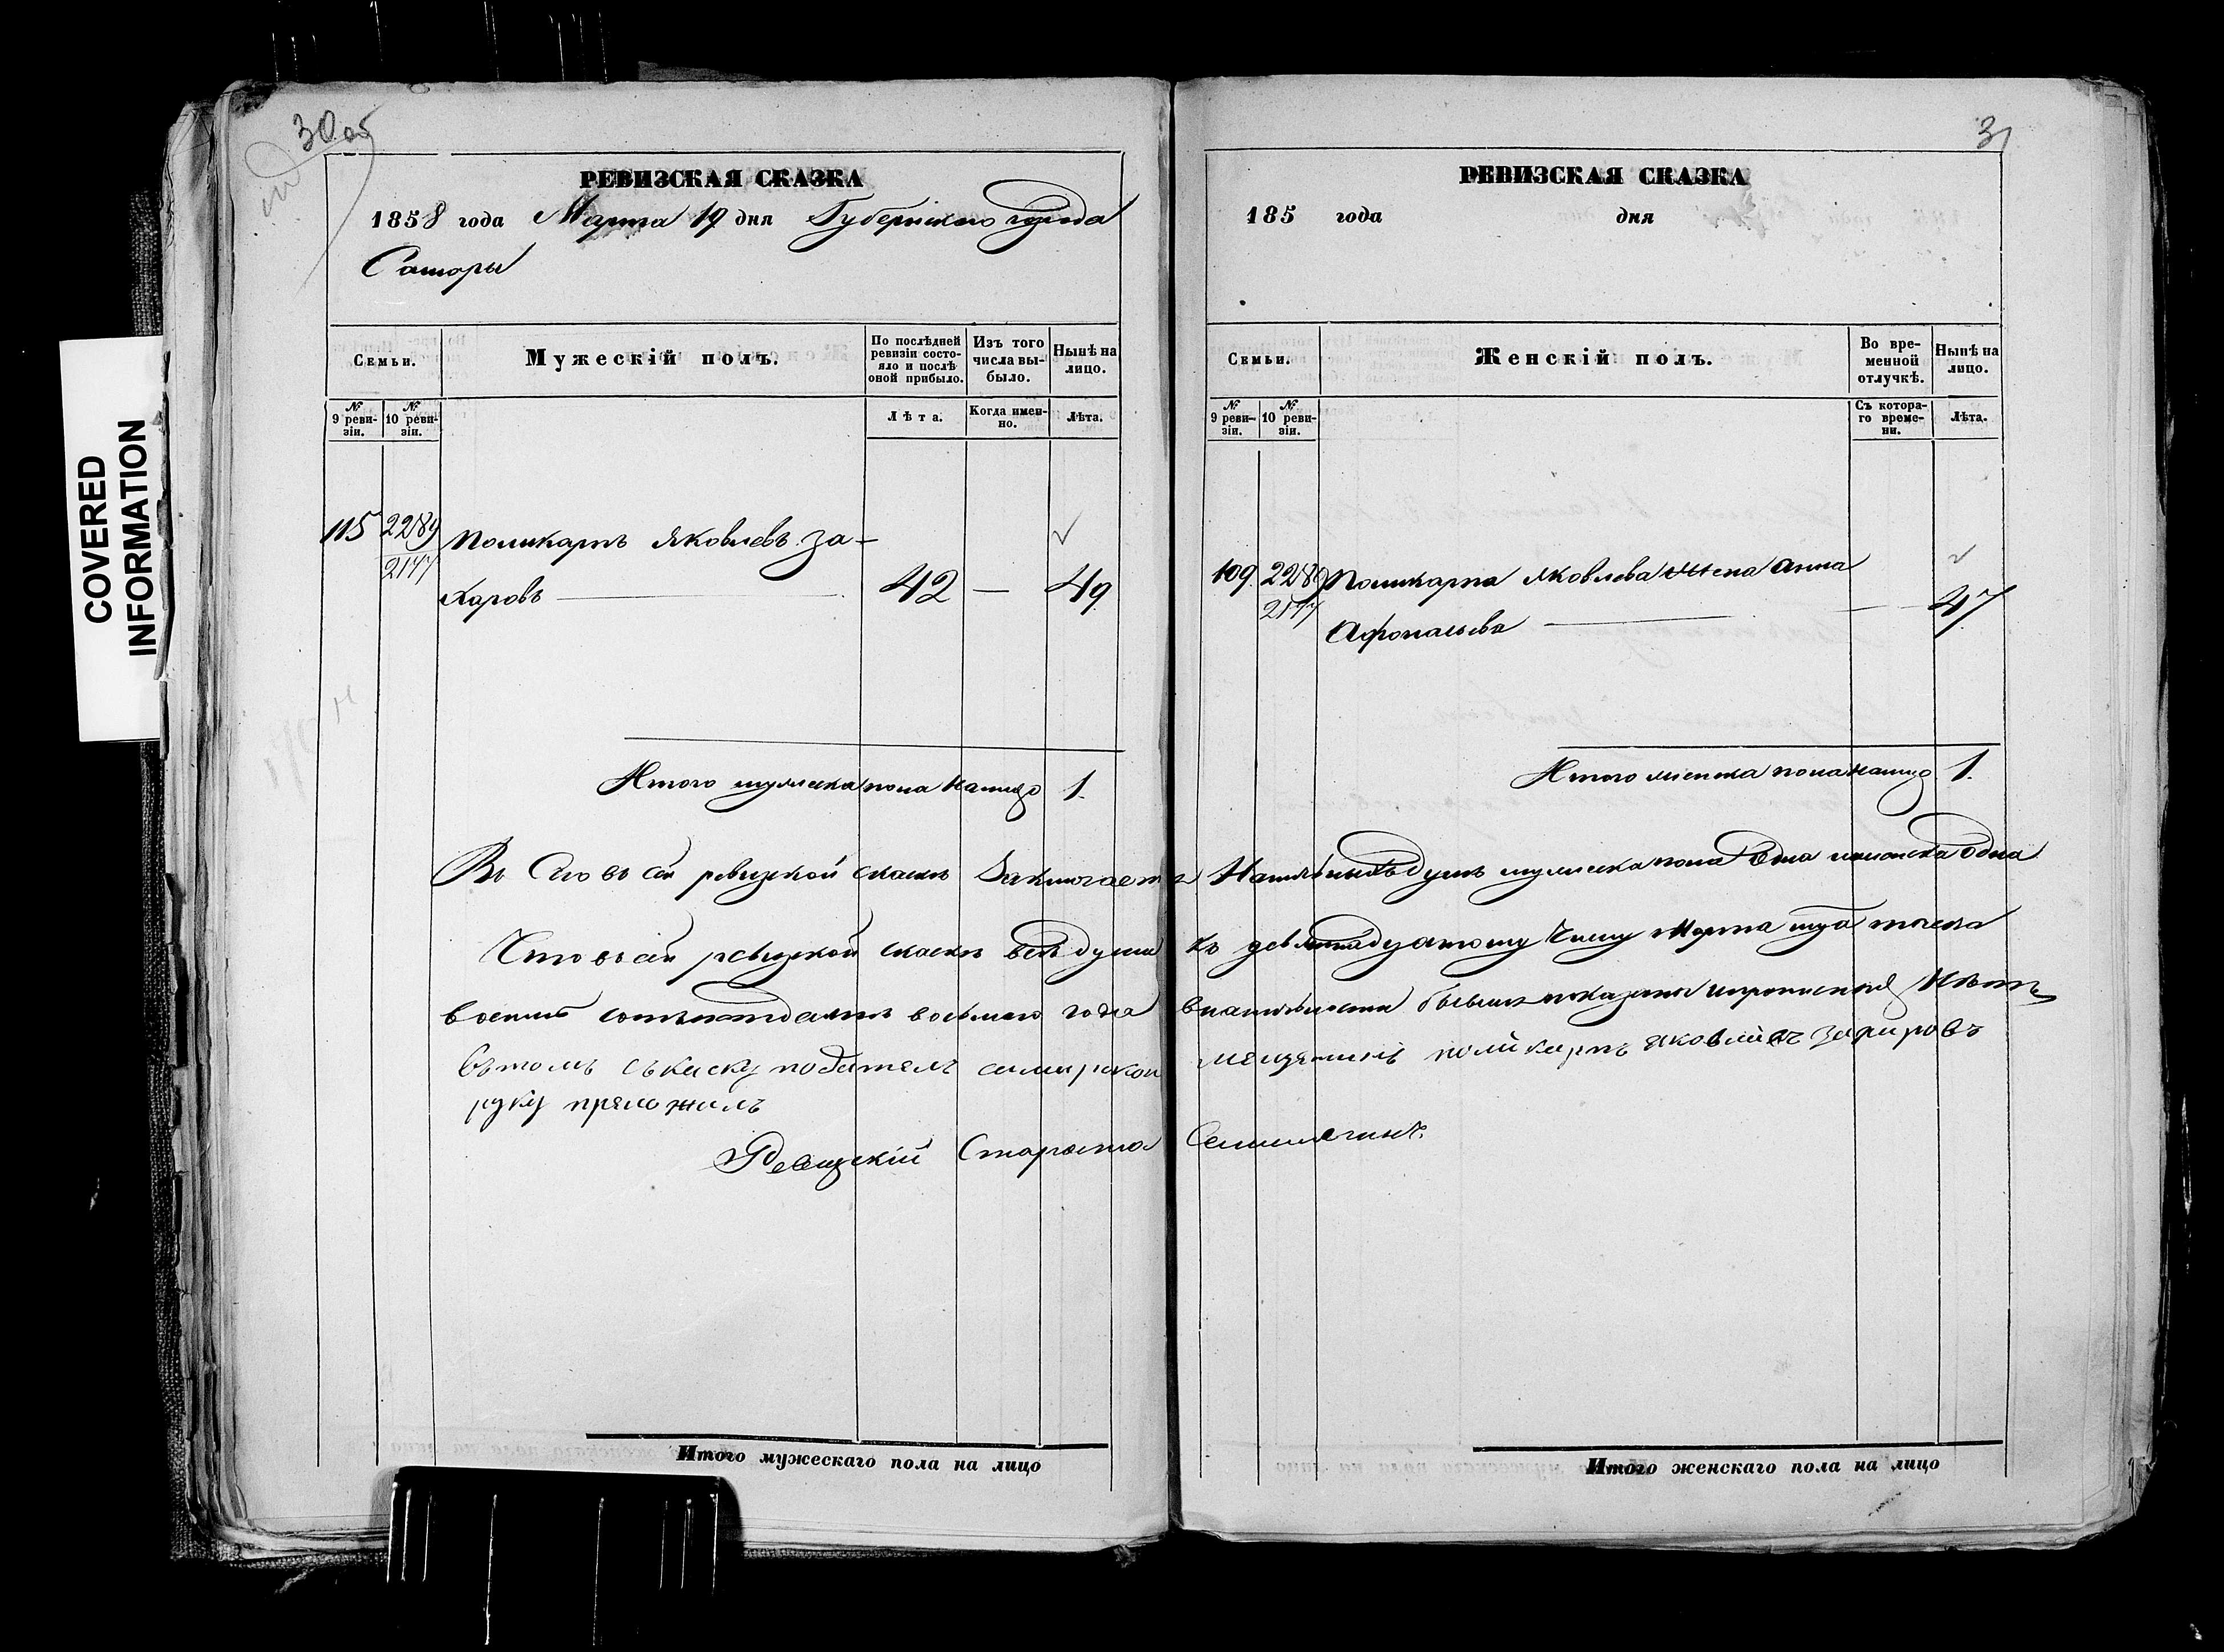 30 об
РЕВИЗСКАЯ СКАЗКА
1858 года Марта 19 дня Губернскаго города
Самары
Семьи.
Мужескій полъ.
По послѣдней ревизіи состояло и послѣ оной прибыло.
Изъ того числа выбыло.
Нынѣ на лицо.
№ 9 ревизіи.
№ 10 ревизіи.
Лѣта.
Когда именно.
Лѣта.
115 2289 Поликарпъ Яковлевъ За-
2177
харовъ 42 — 49
Итого мужеска пола налицо 1.
31
РЕВИЗСКАЯ СКАЗКА
185 года дня
Семьи.
Женскій полъ.
Во временной отлучкѣ.
Нынѣ на лицо.
№ 9 ревизіи.
№ 10 ревизіи.
Съ котораго времени.
Лѣта.
109 2289 Поликарпа Яковлева жена Анна
2177
Афонасьева — 47
Итого женска пола налицо 1.
Въ сей ревизкой сказкѣ Заключается Наличныхъ душъ мужеска пола Одна женска Одна
Что въ сей ревизкой сказкѣ всѣ души къ девятнадцатому числу Марта тысяча
восемь сотъ пятдесятъ восьмаго года вналичности бывшия показаны и прописныхъ Нѣтъ
въ томъ скаску податель самарской мещянинъ поликарпъ яковлевъ захаровъ
руку приложилъ
Ревизскій Староста
Итого мужескаго пола на лицо
Итого женскаго пола на лицо
COVERED
INFORMATION